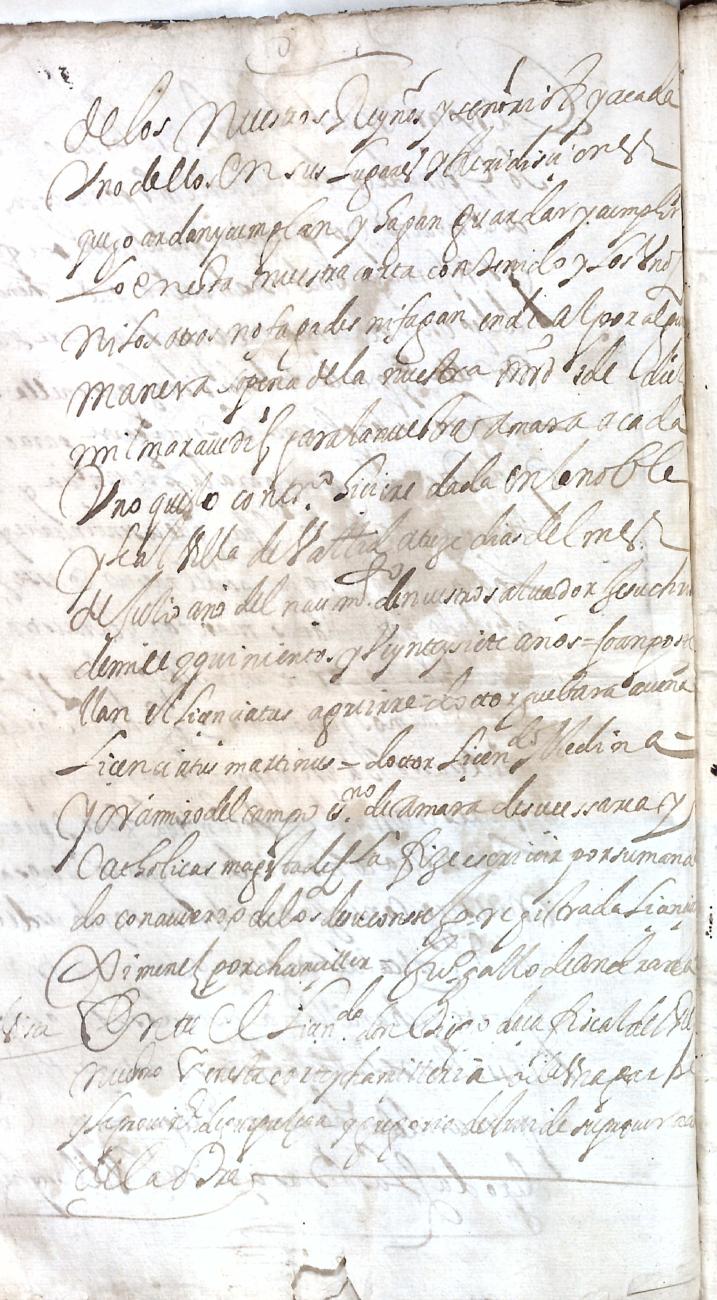 de los nuestros Reynos y señorios y a cada
Uno dellos en sus lugares y Juridisiones
que goarden y cumplan y hagan guardar y cumplir
Lo en esta nuestra carta contenido y los Unos
ni los otros no fagades ni fagan en de al por alguna
manera so pena de la nuestra mrd i de diez
mil maravedis para la nuestra camara a cada
Uno que lo contro hiciere dada en la noble
y leal Villa de Vallid a doze dias del mes
de Julio año del nacimo de nuestro salvador Jesuchri
de mill y quinientos y Veynte y siete años = Joanposte
llan el Licenciatus aguirre doctor guebara acuña
Licenciatus martinus = doctor Licendo Medina =
Yo Ramiro del campo esno de camara de sus cessarea y
Catholicas magestades la fize escrivir por su manda
do con acuerdo de los de su consejo registrada Licenci
Ximenez por chanciller = gallo de andrada
Ente el Licendo don Diego fiscal del Rey
nuestro en esta corte y chancilleria
y
de la Dra